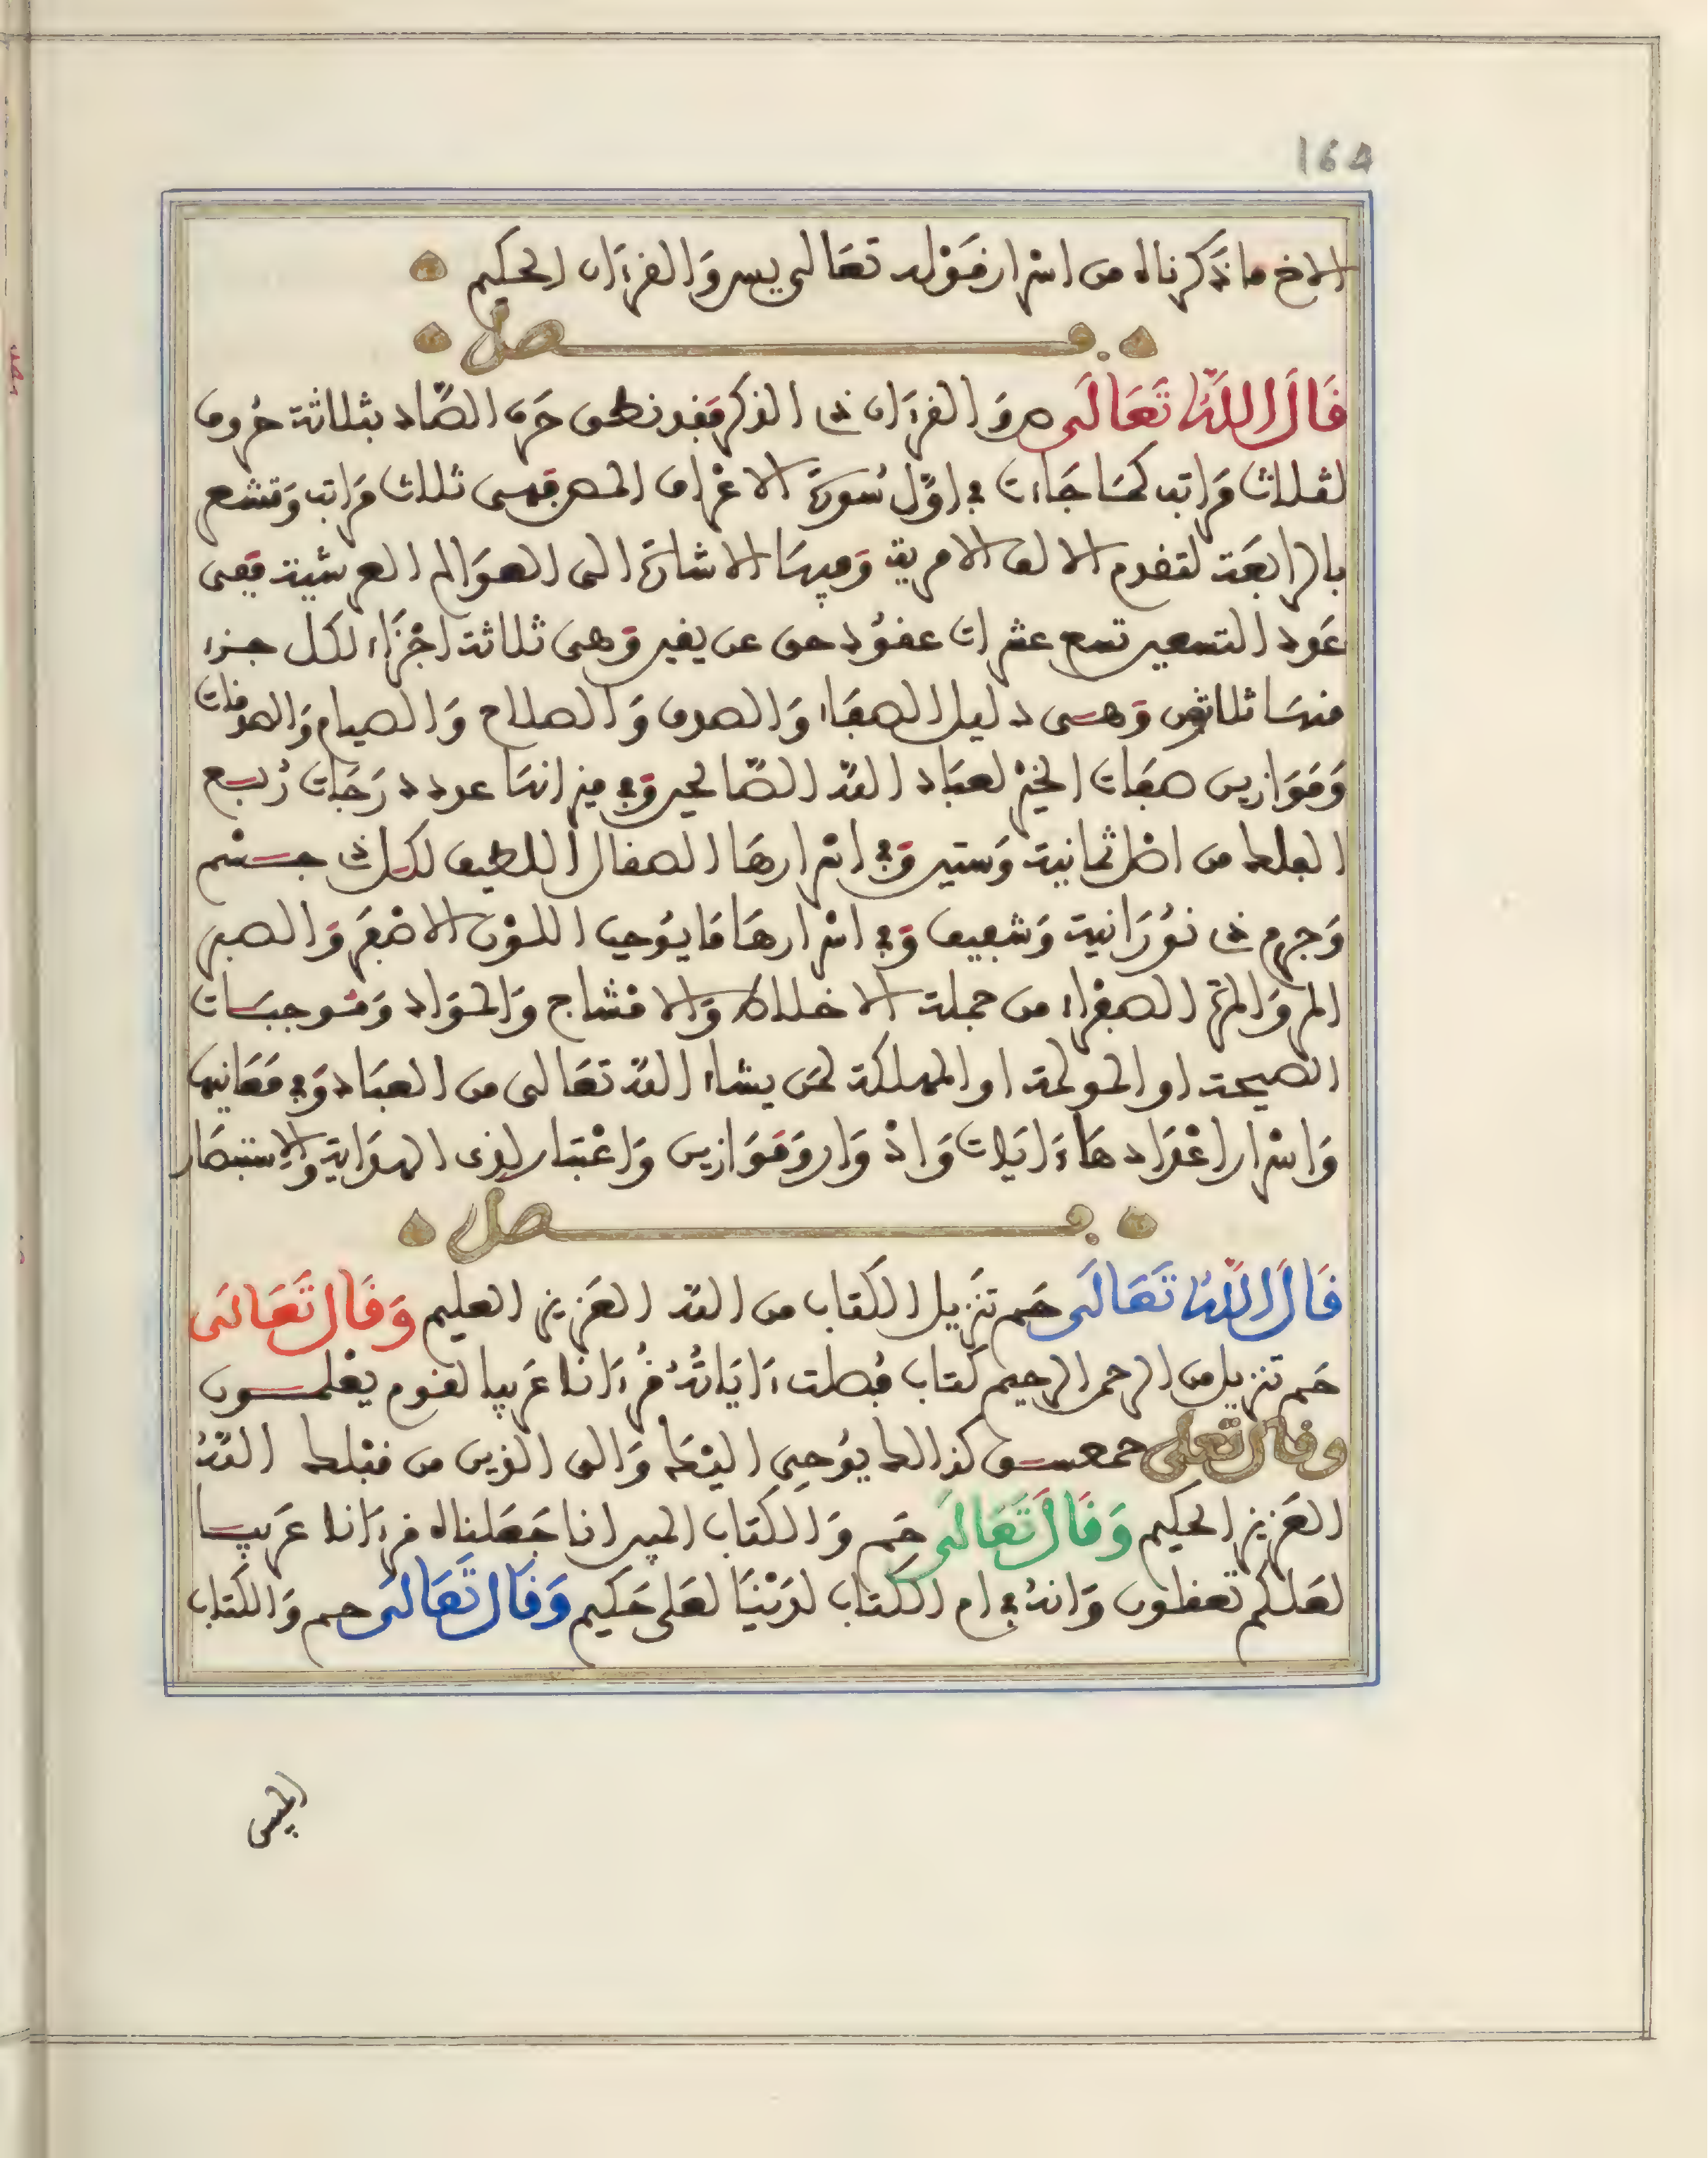 164
الاخ ما ذكرناه من اسرار قوله تعالى يس والقرءان الحكيم
فصل
قال الله تعالى ص والقرءان ذى الذكر فقد نطق حرف الصاد بثلاثة حروف
لثلاث مراتب كما جاءت في اول سورة الاعراف المص فهى ثلاث مراتب وتشعر
بالرابعة لتقدم الالف الامرية وفيها الاشارة الى العوالم العرشية ففى
عدد التسعين تسع عشرات عقود حق عن يقين وهى ثلاثة اجزاء لكل جزء
منها ثلاثون وهى دليل الصفاء والصدق والصلاح والصيام والصدقات
وموازين صفات الخير لعباد الله الصالحين وفي ميزانها عدد درجات ربع
الفلك من اصل ثمانية وستين وفي اسرارها الصقال اللطيف لكل ذى جسم
وجرم ذى نورانية وشفيف وفي اسرارها ما يوجب اللون الاصفر والصبر
المر والمرة الصفراء من جملة الاخلاط والامشاج والمواد وموجبات
الصيحة او المولمة او المهلكة لمن يشاء الله تعالى من العباد وفي معانيها
واسرار اعدادها ءايات وادوار وموازين واعتبار لذى الهداية والاستبصار
فصل
قال الله تعالى حم تنزيل الكتاب من الله العزيز العليم وقال تعالى
حم تنزيل من الرحمن الرحيم كتاب فصلت ءاياته قرءانا عربيا لقوم يعلمون
وقال تعلى حمعسق كذالك يوحى اليك والى الذين من قبلك الله
العزيز الحكيم وقال تعالى حم والكتاب المبين انا جعلناه قرءانا عربيا
لعلكم تعقلون وانه في ام الكتاب لدينا لعلى حكيم وقال تعالى حم والكتاب
المبين